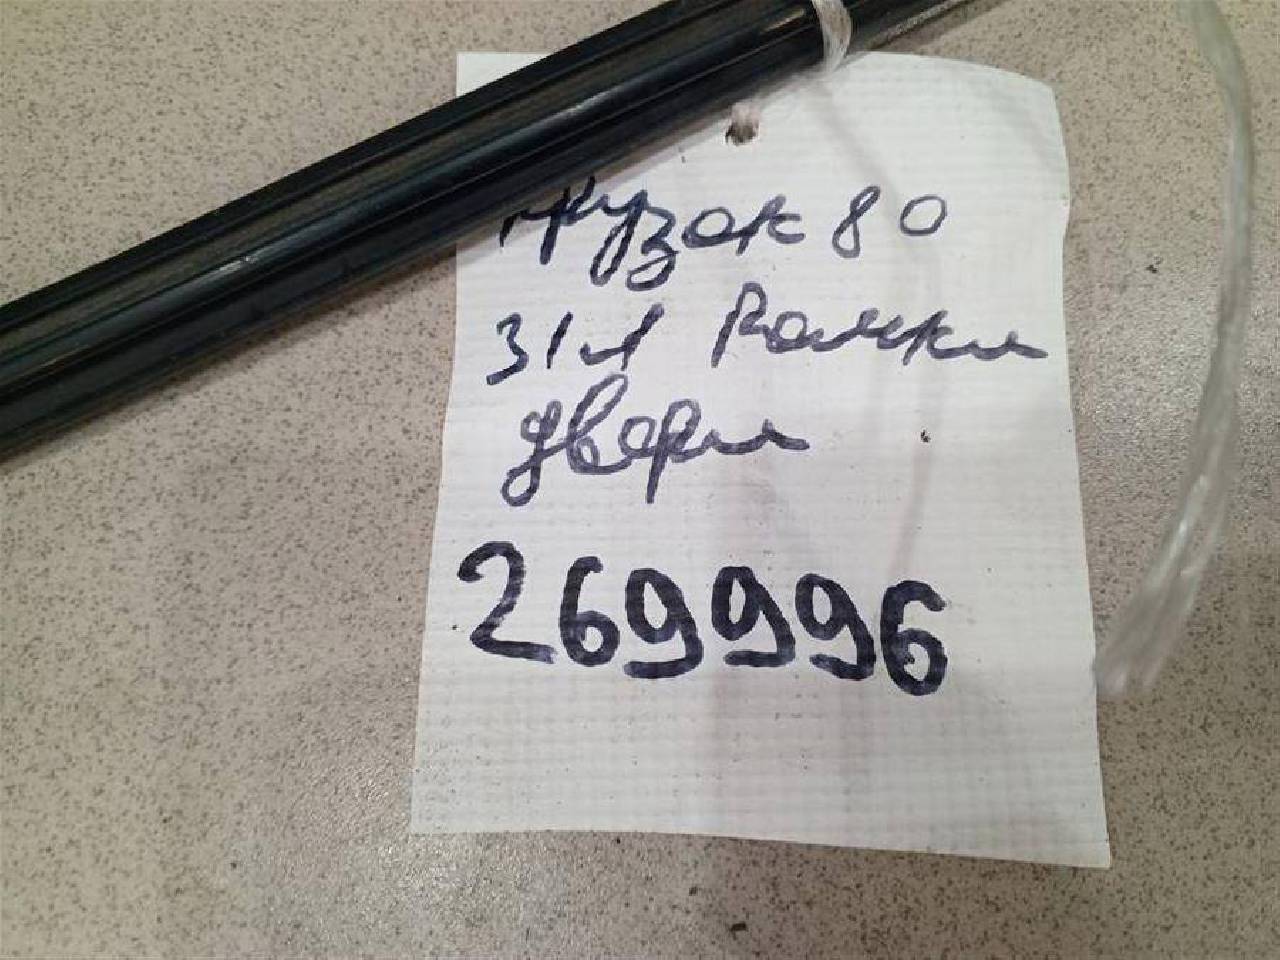 крузак 80
З/Л Рамки
двери
269996